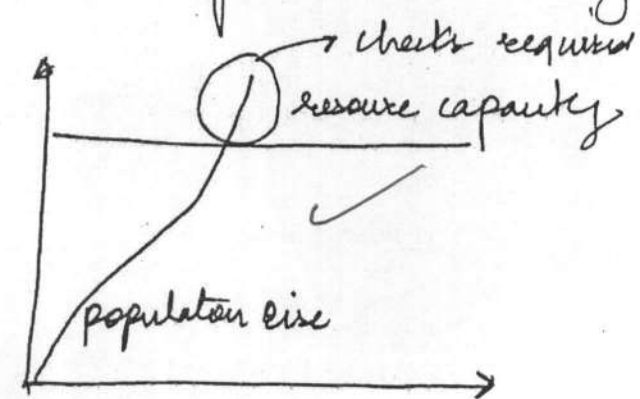 checks required
resource capacity
population rise